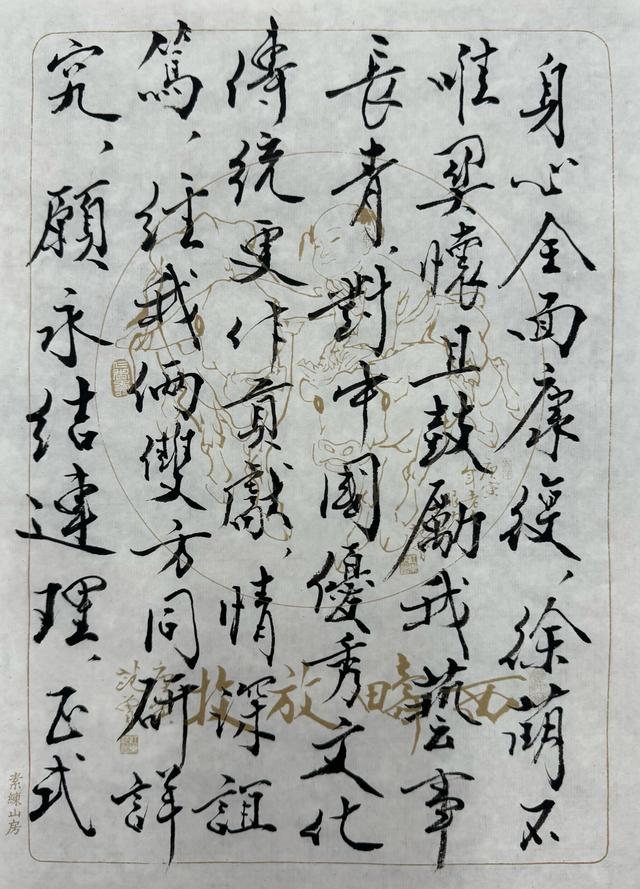 身心全面康復、徐萌不
唯翼懷且鼓勵我藝事
長青、對中國優秀文化
傳統更作貢獻、情深誼
篤、經我倆雙方同研詳
究、願永结連理、正式
西疇放牧
素練山房